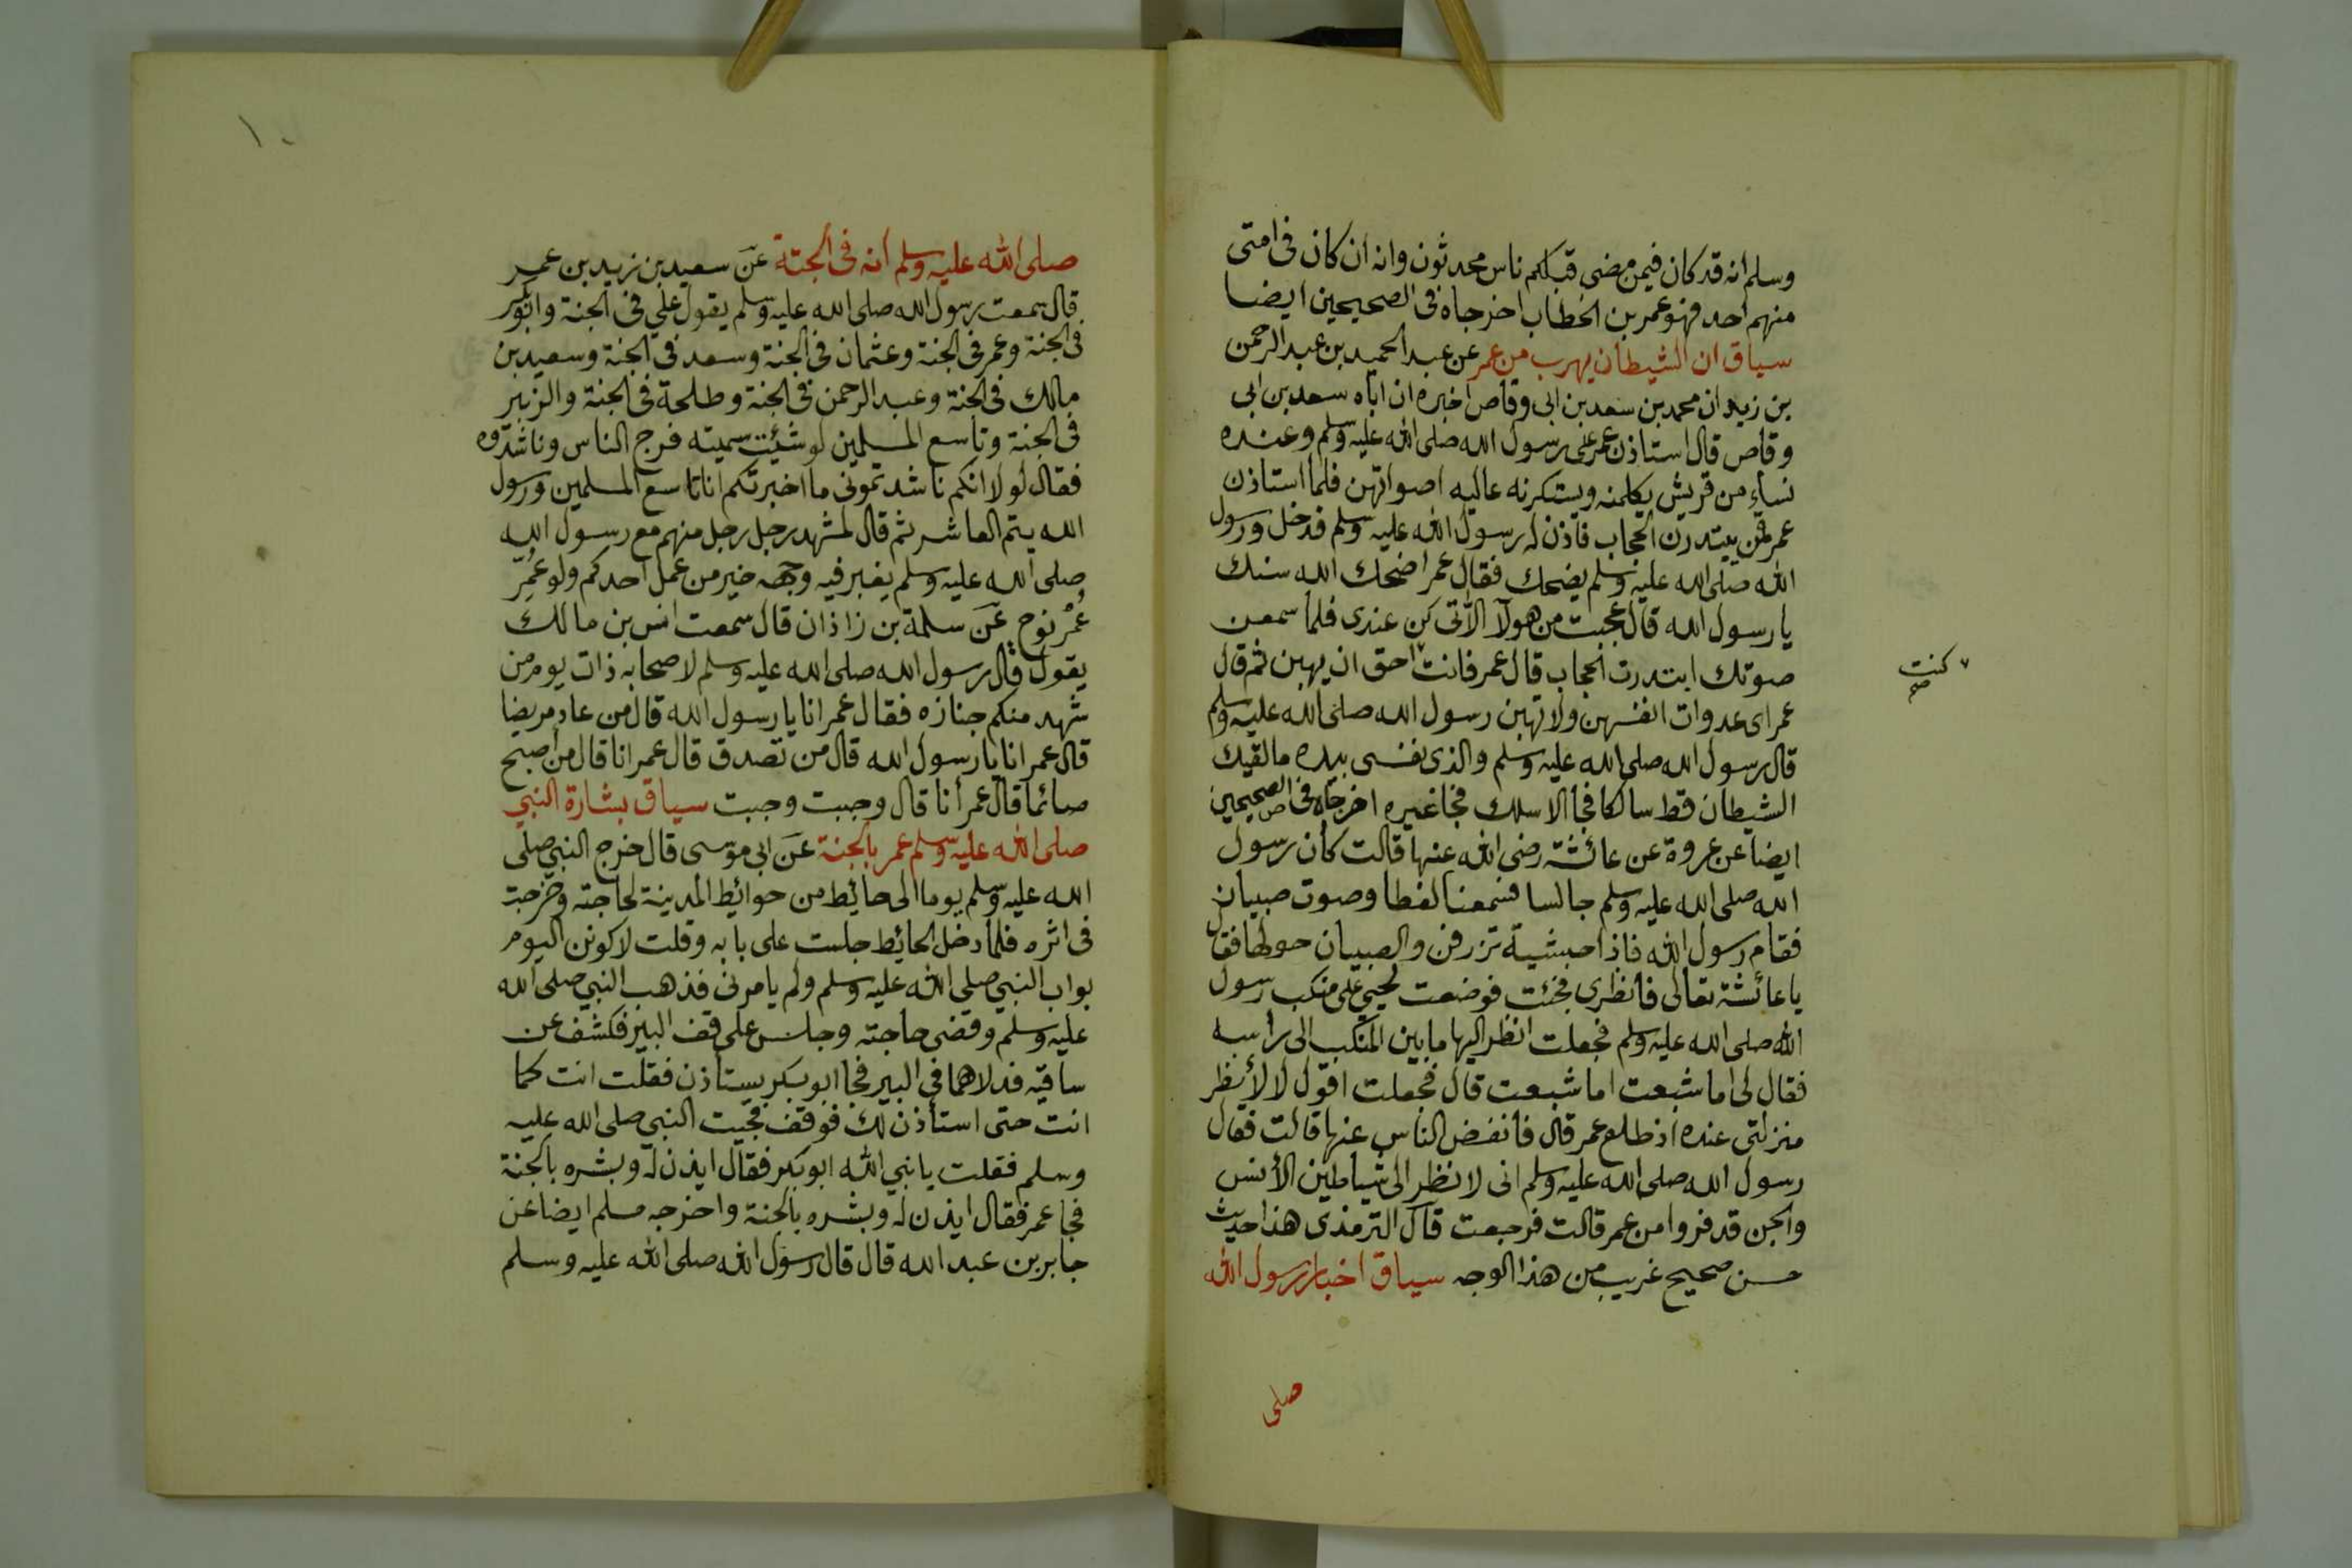 وسلم انه قد كان فيمن مضى قبلكم ناس محدثون وانه ان كان فى امتى
منهم احد فهو عمر بن الخطاب اخرجاه فى الصحيحين ايضا
سياق ان الشيطان يهرب من عمر عن عبد الحميد بن عبد الرحمن
بن زيد ان محمد بن سعد بن ابى وقاص اخبره ان اباه سعد بن ابى
وقاص قال استاذن عمر على رسول الله صلى الله عليه وسلم وعنده
نساء من قريش يكلمنه ويستكرنه عاليه اصواتهن فلما استاذن
عمر قمن يبتدرن الحجاب فاذن له رسول الله عليه وسلم فدخل ورسول
الله صلى الله عليه وسلم يضحك فقال عمر اضحك الله سنك
يا رسول الله قال عجبت من هولآ الآتى كن عندى فلما سمعن
صوتك ابتدرت الحجاب قال عمر فانت احق ان يهبن ثم قال
كنت صح
عمر اى عدوات انفسهن ولا تهبن رسول الله صلى الله عليه وسلم
قال رسول الله صلى الله عليه وسلم والذى نفسى بيده ما لقيك
الشيطان قط سالكا فجا الا سلك فجا غيره اخرجاه فى الصحيحين
ايضا عن عروة عن عائشة رضى الله عنها قالت كان رسول
الله صلى الله عليه وسلم جالسا فسمعنا لغطا وصوت صبيان
فقام رسول الله فاذا حبشية تزرفن والصبيان حولها فقال
يا عائشة تعالى فانظرى فجئت فوضعت لحيي على منكب رسول
الله صلى الله عليه وسلم فجعلت انظر اليها ما بين المنكب الى راسه
فقال لى اما شبعت اما شبعت قال فجعلت اقول لا لأنظر
منزلتى عنده اذ طلع عمر قال فانفض الناس عنها قالت فقال
رسول الله صلى الله عليه وسلم انى لا نظر الى شياطين الأنس
والجن قد فروا من عمر قالت فرجعت قال الترمذى هذا حديث
حسن صحيح غريب من هذا الوجه سياق اخبار رسول الله
صلى
١٠
صلى الله عليه وسلم انه فى الجنة عن سعيد بن زيد بن عمر
قال سمعت رسول الله صلى الله عليه وسلم يقول علي فى الجنة وابوبكر
فى الجنة وعمر فى الجنة وعثمان فى الجنة وسعد فى الجنة وسعيد بن
مالك فى الجنة وعبد الرحمن فى الجنة وطلحة فى الجنة والزبير
فى الجنة وتاسع المسلمين لو شئت سميته فرج الناس وناشدوه
فقال لولا انكم ناشدتمونى ما اخبرتكم انا تاسع المسلمين ورسول
الله يتم العاشر ثم قال لمشهد رجل رجل منهم مع رسول الله
صلى الله عليه وسلم يغبر فيه وجهه خير من عمل احدكم ولو عُمِّرَ
عُمْرَ نوح عن سلمة بن زاذان قال سمعت انس بن مالك
يقول قال رسول الله صلى الله عليه وسلم لاصحابه ذات يوم من
شهد منكم جنازه فقال عمر انا يا رسول الله قال من عاد مريضا
قال عمر انا يا رسول الله قال من تصدق قال عمر انا قال من اصبح
صائما قال عمر أنا قال وجبت وجبت سياق بشارة النبي
صلى الله عليه وسلم عمر بالجنة عن ابى موسى قال خرج النبي صلى
الله عليه وسلم يوما الى حائيط من حوائيط المدينة لحاجته وخرجت
فى اثره فلما دخل الحائيط جلست على بابه وقلت لاكونن اليوم
بواب النبي صلى الله عليه وسلم ولم يامرنى فذهب النبي صلى الله
عليه وسلم وقضى حاجته وجلس على قف البير فكشف عن
ساقيه فدلاهما فى البير فجا ابو بكر يستأذن فقلت انت كما
انت حتى استأذن لك فوقف فجيت النبي صلى الله عليه
وسلم فقلت يا نبي الله ابو بكر فقال ايذن له وبشره بالجنة
فجا عمر فقال ايذن له وبشره بالجنة واخرجه مسلم ايضا عن
جابر بن عبد الله قال قال رسول الله صلى الله عليه وسلم